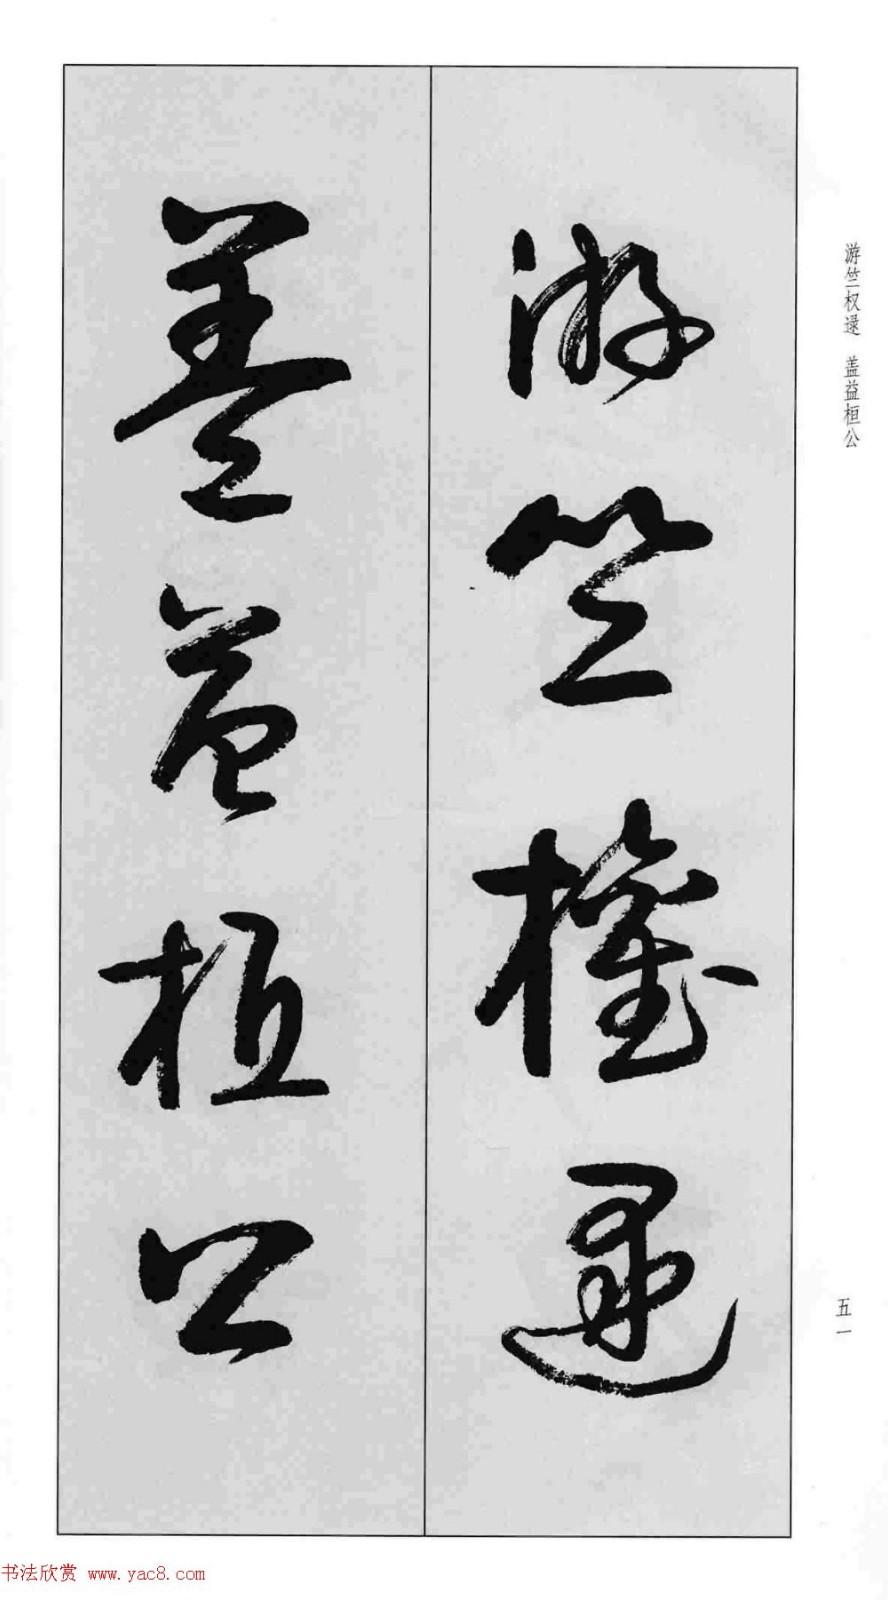 游竺权逯 盖益桓公
游竺權逯
盖益桓公
五一
书法欣赏 www.yac8.com